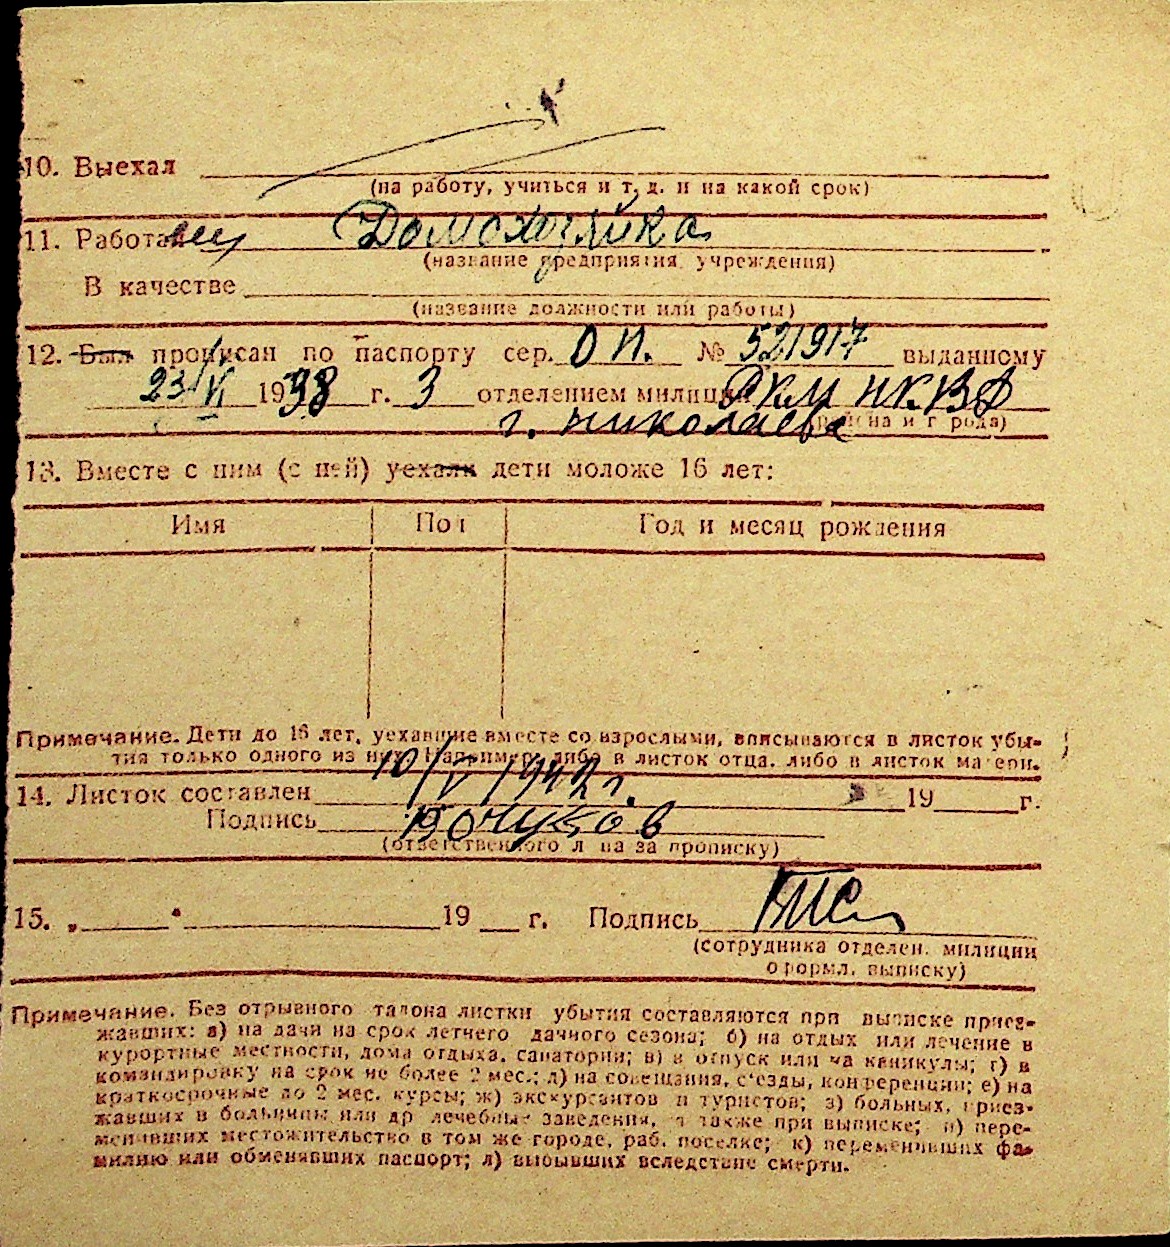 10. Выехал
(на работу, учиться и т. д. и на какой срок)
11. Работа Домохозяйка
(название предприятия, учреждения)
В качестве
(название должности или работы)
12. Был прописан по паспорту сер. ОП. № 521917 выданному
23/VI 1938 г. 3 отделением милиции РКМ НКВД
г. Николаева (района и города)
13. Вместе с ним (с ней) уехали дети моложе 16 лет:
Имя Пол Год и месяц рождения
Примечание. Дети до 16 лет, уехавшие вместе со взрослыми, вписываются в листок убы-
тия только одного из них. Например, либо в листок отца, либо в листок матери.
14. Листок составлен 10/V 1942 г. 19 г.
Подпись
(ответственного лица за прописку)
15. „ " 19 г. Подпись
(сотрудника отделен. милиции
оформл. выписку)
Примечание. Без отрывного талона листки убытия составляются при выписке приез-
жавших: а) на дачи на срок летнего дачного сезона; б) на отдых или лечение в
курортные местности, дома отдыха, санатории; в) в отпуск или на каникулы; г) в
командировку на срок не более 2 мес.; д) на совещания, съезды, конференции; е) на
краткосрочные до 2 мес. курсы; ж) экскурсантов и туристов; з) больных, приез-
жавших в больницы или др лечебные заведения, а также при выписке; и) пере-
менивших местожительство в том же городе, раб. поселке; к) переменивших фа-
милию или обменявших паспорт; л) выбывших вследствие смерти.